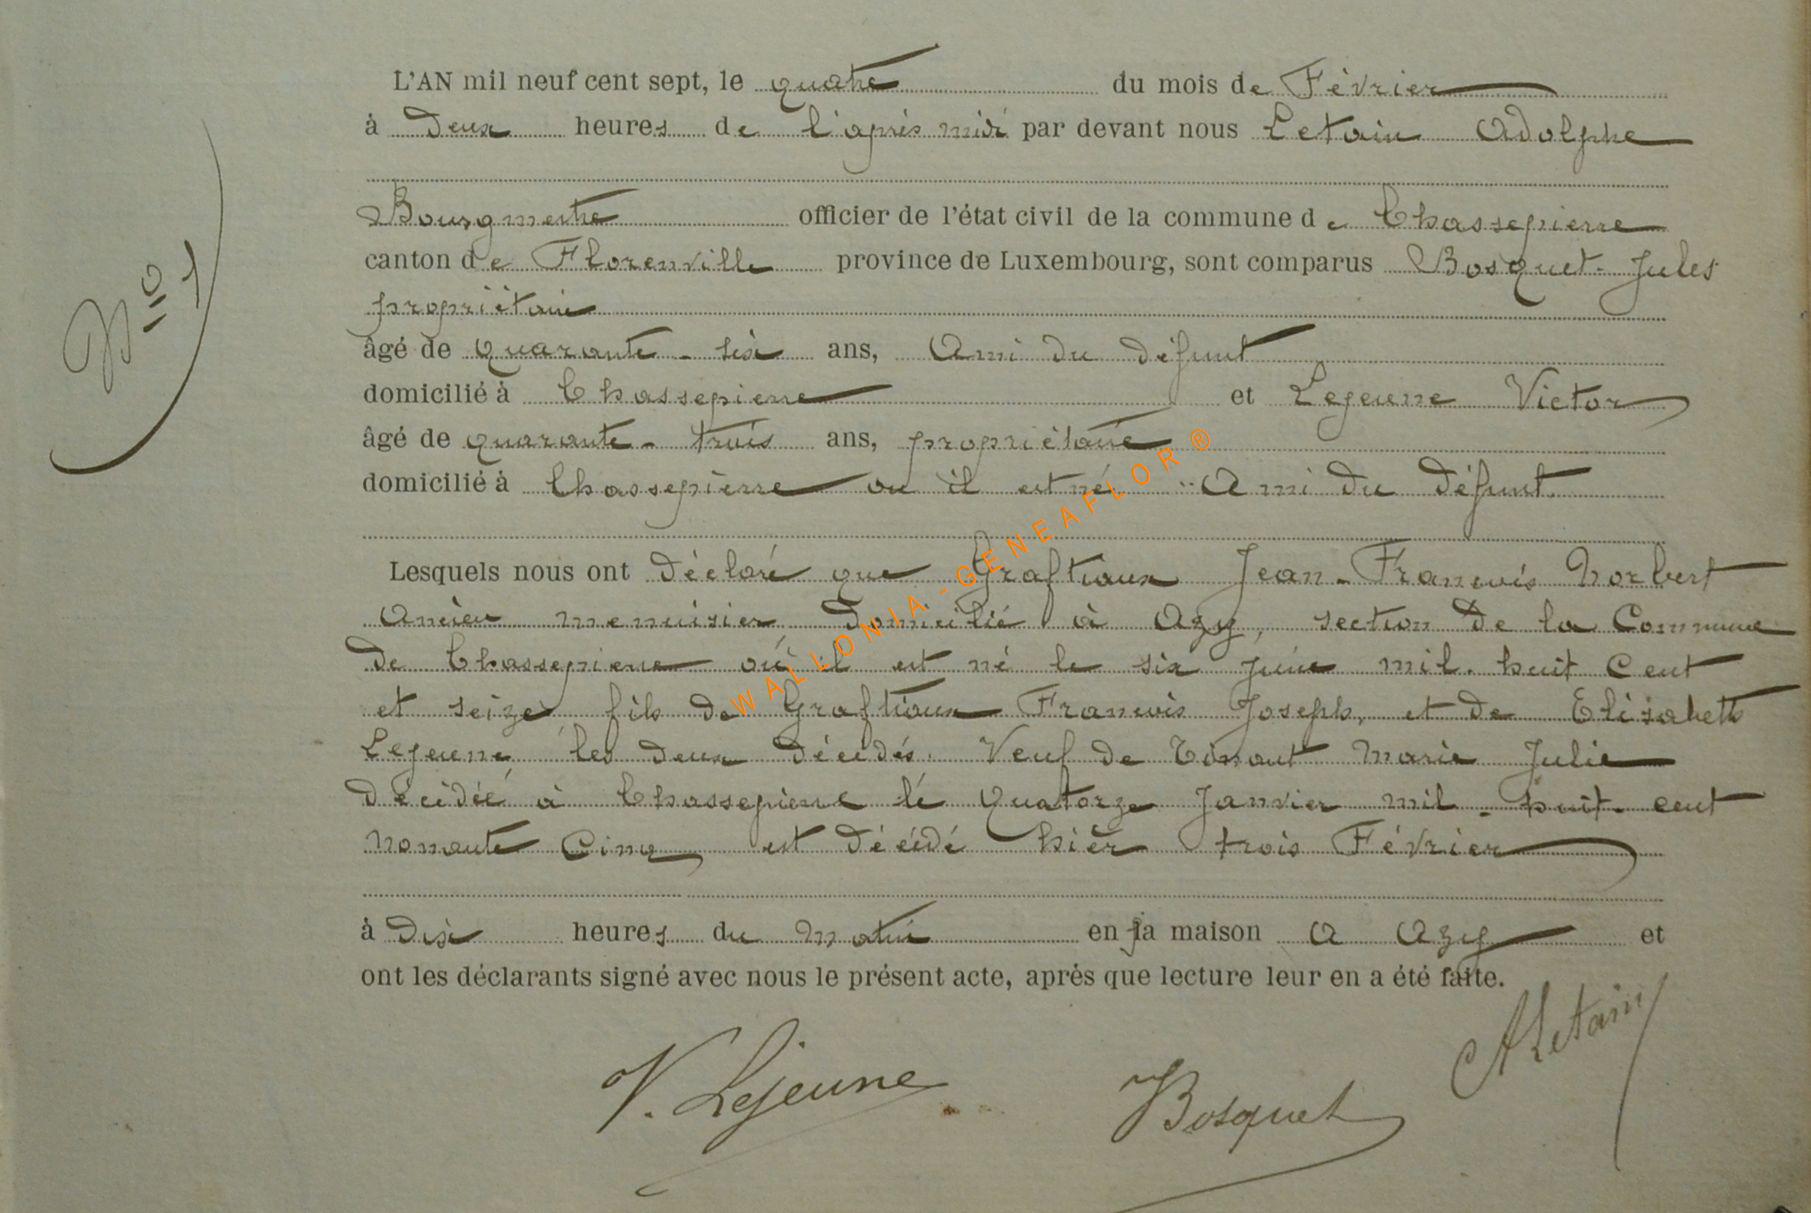 L'AN mil neuf cent sept, le quatre du mois de Février
à Deux heures de l'après midi par devant nous Letain Adolphe
Bourgmestre officier de l'état civil de la commune de Chassepierre
canton de Florenville province de Luxembourg, sont comparus Bosquet Jules
propriétaire
N° 1
âgé de quarante-six ans, Ami du défunt
domicilié à Chassepierre et Lejeune Victor
âgé de quarante-trois ans, propriétaire
domicilié à Chassepierre ou il est né Ami du défunt
Lesquels nous ont Déclaré que Graftiaux Jean-François Norbert
Ancien menuisier Domicilié à Azy, section de la Commune
de Chassepierre où il est né le six juin mil huit cent
et seize fils de Graftiaux François Joseph, et de Elisabeth
Lejeune les deux décédés. Veuf de Marie Julie
décédée à Chassepierre le Quatorze Janvier mil-huit-cent
nonante Cinq est décédé hièr trois Février
à Dix heures du Matin en sa maison A Azy et
ont les déclarants signé avec nous le présent acte, après que lecture leur en a été faite.
WALLONIA-GENEAFLOR®
ALetain
V. Lejeune Bosquet